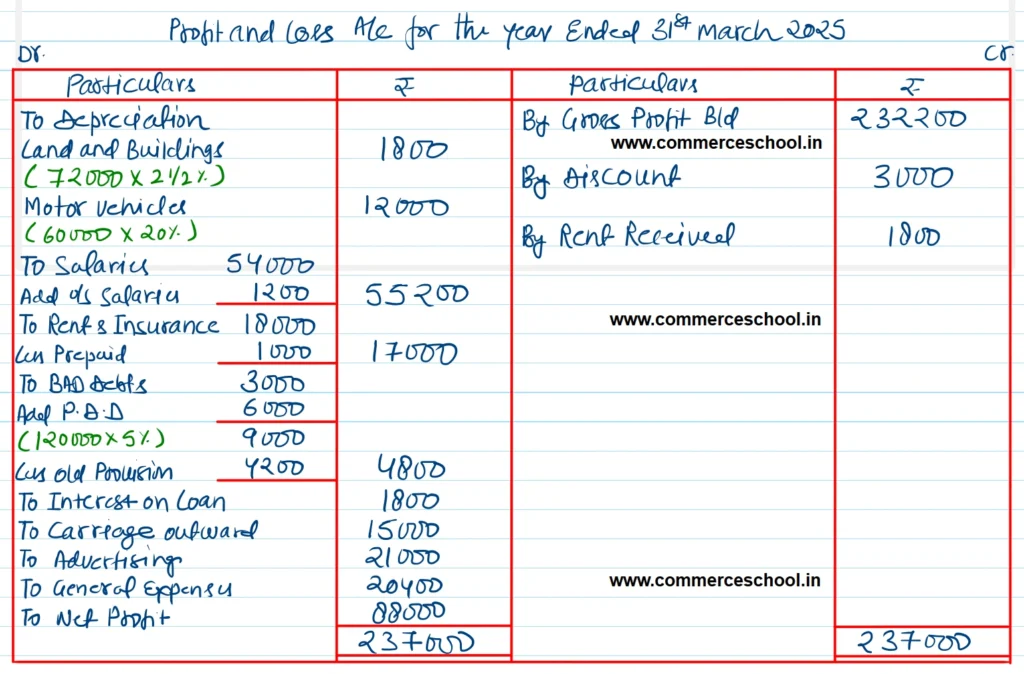 Profit and Loss A/c for the year Ended 31st March 2025
Dr.
Cr.
Particulars ₹ Particulars ₹
To Depreciation
Land and Buildings 1800
(72000 x 2 1/2 %)
Motor Vehicles 12000
(60000 x 20%)
To Salaries 54000
Add o/s Salaries 1200 55200
To Rent & Insurance 18000
Less Prepaid 1000 17000
To BAD Debts 3000
Add P.B.D 6000
(120000 x 5%) 9000
Less Old Provision 4200 4800
To Interest on Loan 1800
To Carriage outward 15000
To Advertising 21000
To General Expenses 20400
To Net Profit 88000
237000
By Gross Profit B/d 232200
www.commerceschool.in
By Discount 3000
By Rent Received 1800
www.commerceschool.in
www.commerceschool.in
237000